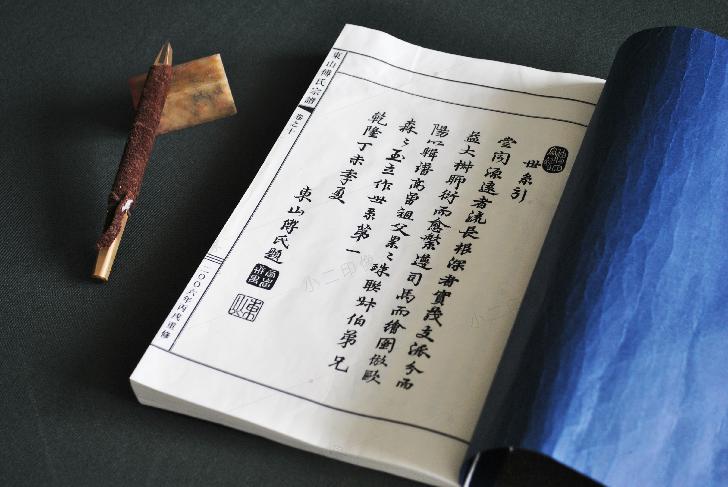 世系引
嘗闻源遠者流長根深者實茂支派分而
益大椒聊衍而愈繁遵司馬而繪圖倣歐
陽以輯譜高曾祖父累々珠聯叔伯弟兄
森々玉立作世系第一
乾隆丁未季夏
東山傅氏題
東山傅氏宗譜
卷之十
二〇〇六年丙戌重修